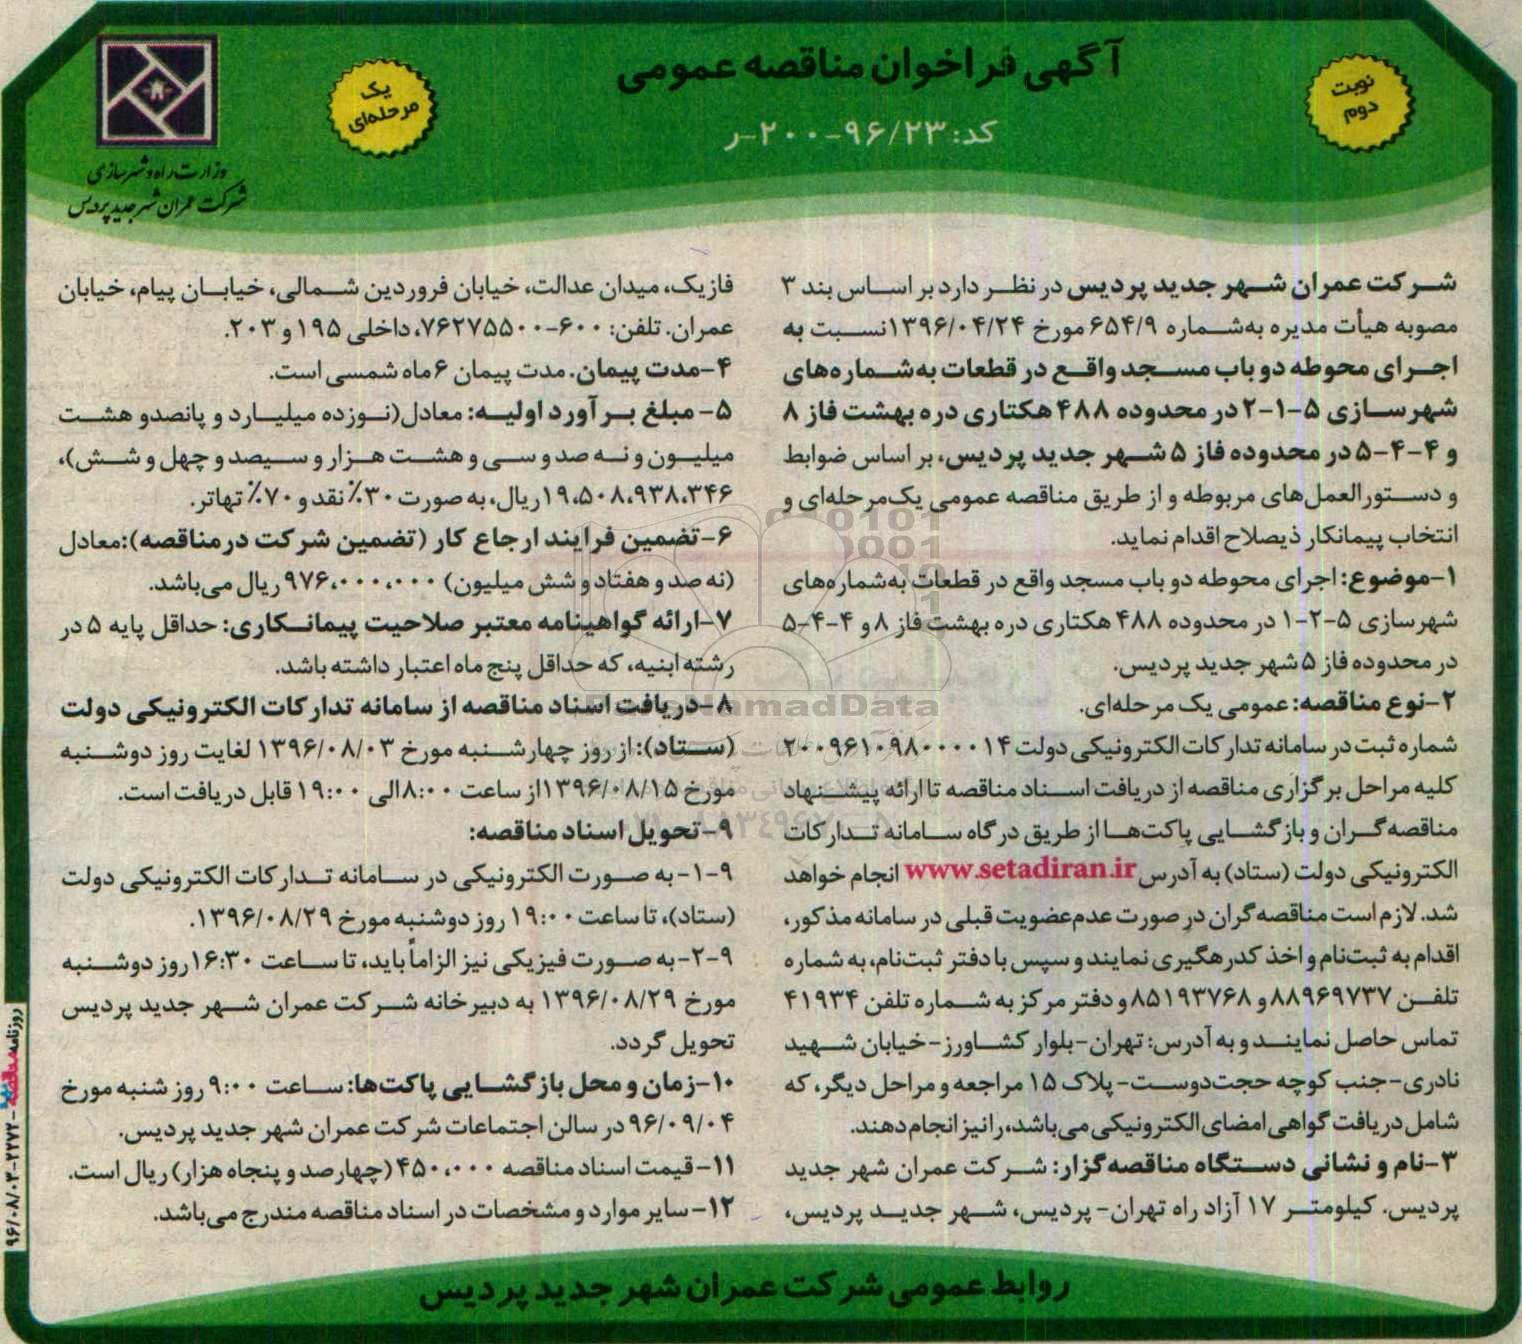 آگهی فراخوان مناقصه عمومی
کد: ۹۶/۲۳-۲۰۰-ر
نوبت
دوم
یک
مرحله‌ای
وزارت راه و شهرسازی
شرکت عمران شهر جدید پردیس
شرکت عمران شهر جدید پردیس در نظر دارد بر اساس بند ۳
مصوبه هیأت مدیره به‌شماره ۶۵۴/۹ مورخ ۱۳۹۶/۰۴/۲۴ نسبت به
اجرای محوطه دو باب مسجد واقع در قطعات به‌شماره‌های
شهرسازی ۵-۱-۲ در محدوده ۴۸۸ هکتاری دره بهشت فاز ۸
و ۴-۴-۵ در محدوده فاز ۵ شهر جدید پردیس، بر اساس ضوابط
و دستورالعمل‌های مربوطه و از طریق مناقصه عمومی یک‌مرحله‌ای و
انتخاب پیمانکار ذیصلاح اقدام نماید.
۱-موضوع: اجرای محوطه دو باب مسجد واقع در قطعات به‌شماره‌های
شهرسازی ۵-۲-۱ در محدوده ۴۸۸ هکتاری دره بهشت فاز ۸ و ۴-۴-۵
در محدوده فاز ۵ شهر جدید پردیس.
۲-نوع مناقصه: عمومی یک مرحله‌ای.
شماره ثبت در سامانه تدارکات الکترونیکی دولت ۲۰۰۹۶۱۰۹۸۰۰۰۰۱۴
کلیه مراحل برگزاری مناقصه از دریافت اسناد مناقصه تا ارائه پیشنهاد
مناقصه‌گران و بازگشایی پاکت‌ها از طریق درگاه سامانه تدارکات
الکترونیکی دولت (ستاد) به آدرس www.setadiran.ir انجام خواهد
شد. لازم است مناقصه‌گران در صورت عدم‌عضویت قبلی در سامانه مذکور،
اقدام به ثبت‌نام و اخذ کدرهگیری نمایند و سپس با دفتر ثبت‌نام، به شماره
تلفن ۸۸۹۶۹۷۳۷ و ۸۵۱۹۳۷۶۸ و دفتر مرکز به شماره تلفن ۴۱۹۳۴
تماس حاصل نمایند و به آدرس: تهران-بلوار کشاورز-خیابان شهید
نادری-جنب کوچه حجت‌دوست-پلاک ۱۵ مراجعه و مراحل دیگر، که
شامل دریافت گواهی امضای الکترونیکی می‌باشد، را نیز انجام دهند.
۳-نام و نشانی دستگاه مناقصه‌گزار: شرکت عمران شهر جدید
پردیس. کیلومتر ۱۷ آزاد راه تهران- پردیس، شهر جدید پردیس،
فاز یک، میدان عدالت، خیابان فروردین شمالی، خیابان پیام، خیابان
عمران. تلفن: ۶۰۰-۷۶۲۷۵۵۰۰، داخلی ۱۹۵ و ۲۰۳.
۴-مدت پیمان. مدت پیمان ۶ ماه شمسی است.
۵- مبلغ برآورد اولیه: معادل (نوزده میلیارد و پانصد و هشت
میلیون و نه صد و سی و هشت هزار و سیصد و چهل و شش)،
۱۹،۵۰۸،۹۳۸،۳۴۶ ریال، به صورت ۳۰٪ نقد و ۷۰٪ تهاتر.
۶-تضمین فرایند ارجاع کار (تضمین شرکت در مناقصه): معادل
(نه صد و هفتاد و شش میلیون) ۹۷۶،۰۰۰،۰۰۰ ریال می‌باشد.
۷-ارائه گواهینامه معتبر صلاحیت پیمانکاری: حداقل پایه ۵ در
رشته ابنیه، که حداقل پنج ماه اعتبار داشته باشد.
۸-دریافت اسناد مناقصه از سامانه تدارکات الکترونیکی دولت
(ستاد): از روز چهارشنبه مورخ ۱۳۹۶/۰۸/۰۳ لغایت روز دوشنبه
مورخ ۱۳۹۶/۰۸/۱۵ از ساعت ۸:۰۰ الی ۱۹:۰۰ قابل دریافت است.
۹-تحویل اسناد مناقصه:
۹-۱-به صورت الکترونیکی در سامانه تدارکات الکترونیکی دولت
(ستاد)، تا ساعت ۱۹:۰۰ روز دوشنبه مورخ ۱۳۹۶/۰۸/۲۹.
۹-۲-به صورت فیزیکی نیز الزاماً باید، تا ساعت ۱۶:۳۰ روز دوشنبه
مورخ ۱۳۹۶/۰۸/۲۹ به دبیرخانه شرکت عمران شهر جدید پردیس
تحویل گردد.
۱۰-زمان و محل بازگشایی پاکت‌ها: ساعت ۹:۰۰ روز شنبه مورخ
۹۶/۰۹/۰۴ در سالن اجتماعات شرکت عمران شهر جدید پردیس.
۱۱-قیمت اسناد مناقصه ۴۵۰،۰۰۰ (چهارصد و پنجاه هزار) ریال است.
۱۲-سایر موارد و مشخصات در اسناد مناقصه مندرج می‌باشد.
روابط عمومی شرکت عمران شهر جدید پردیس
روزنامه مناقصه - ۲۲۷۲-۹۶/۰۸/۰۳
NamadData